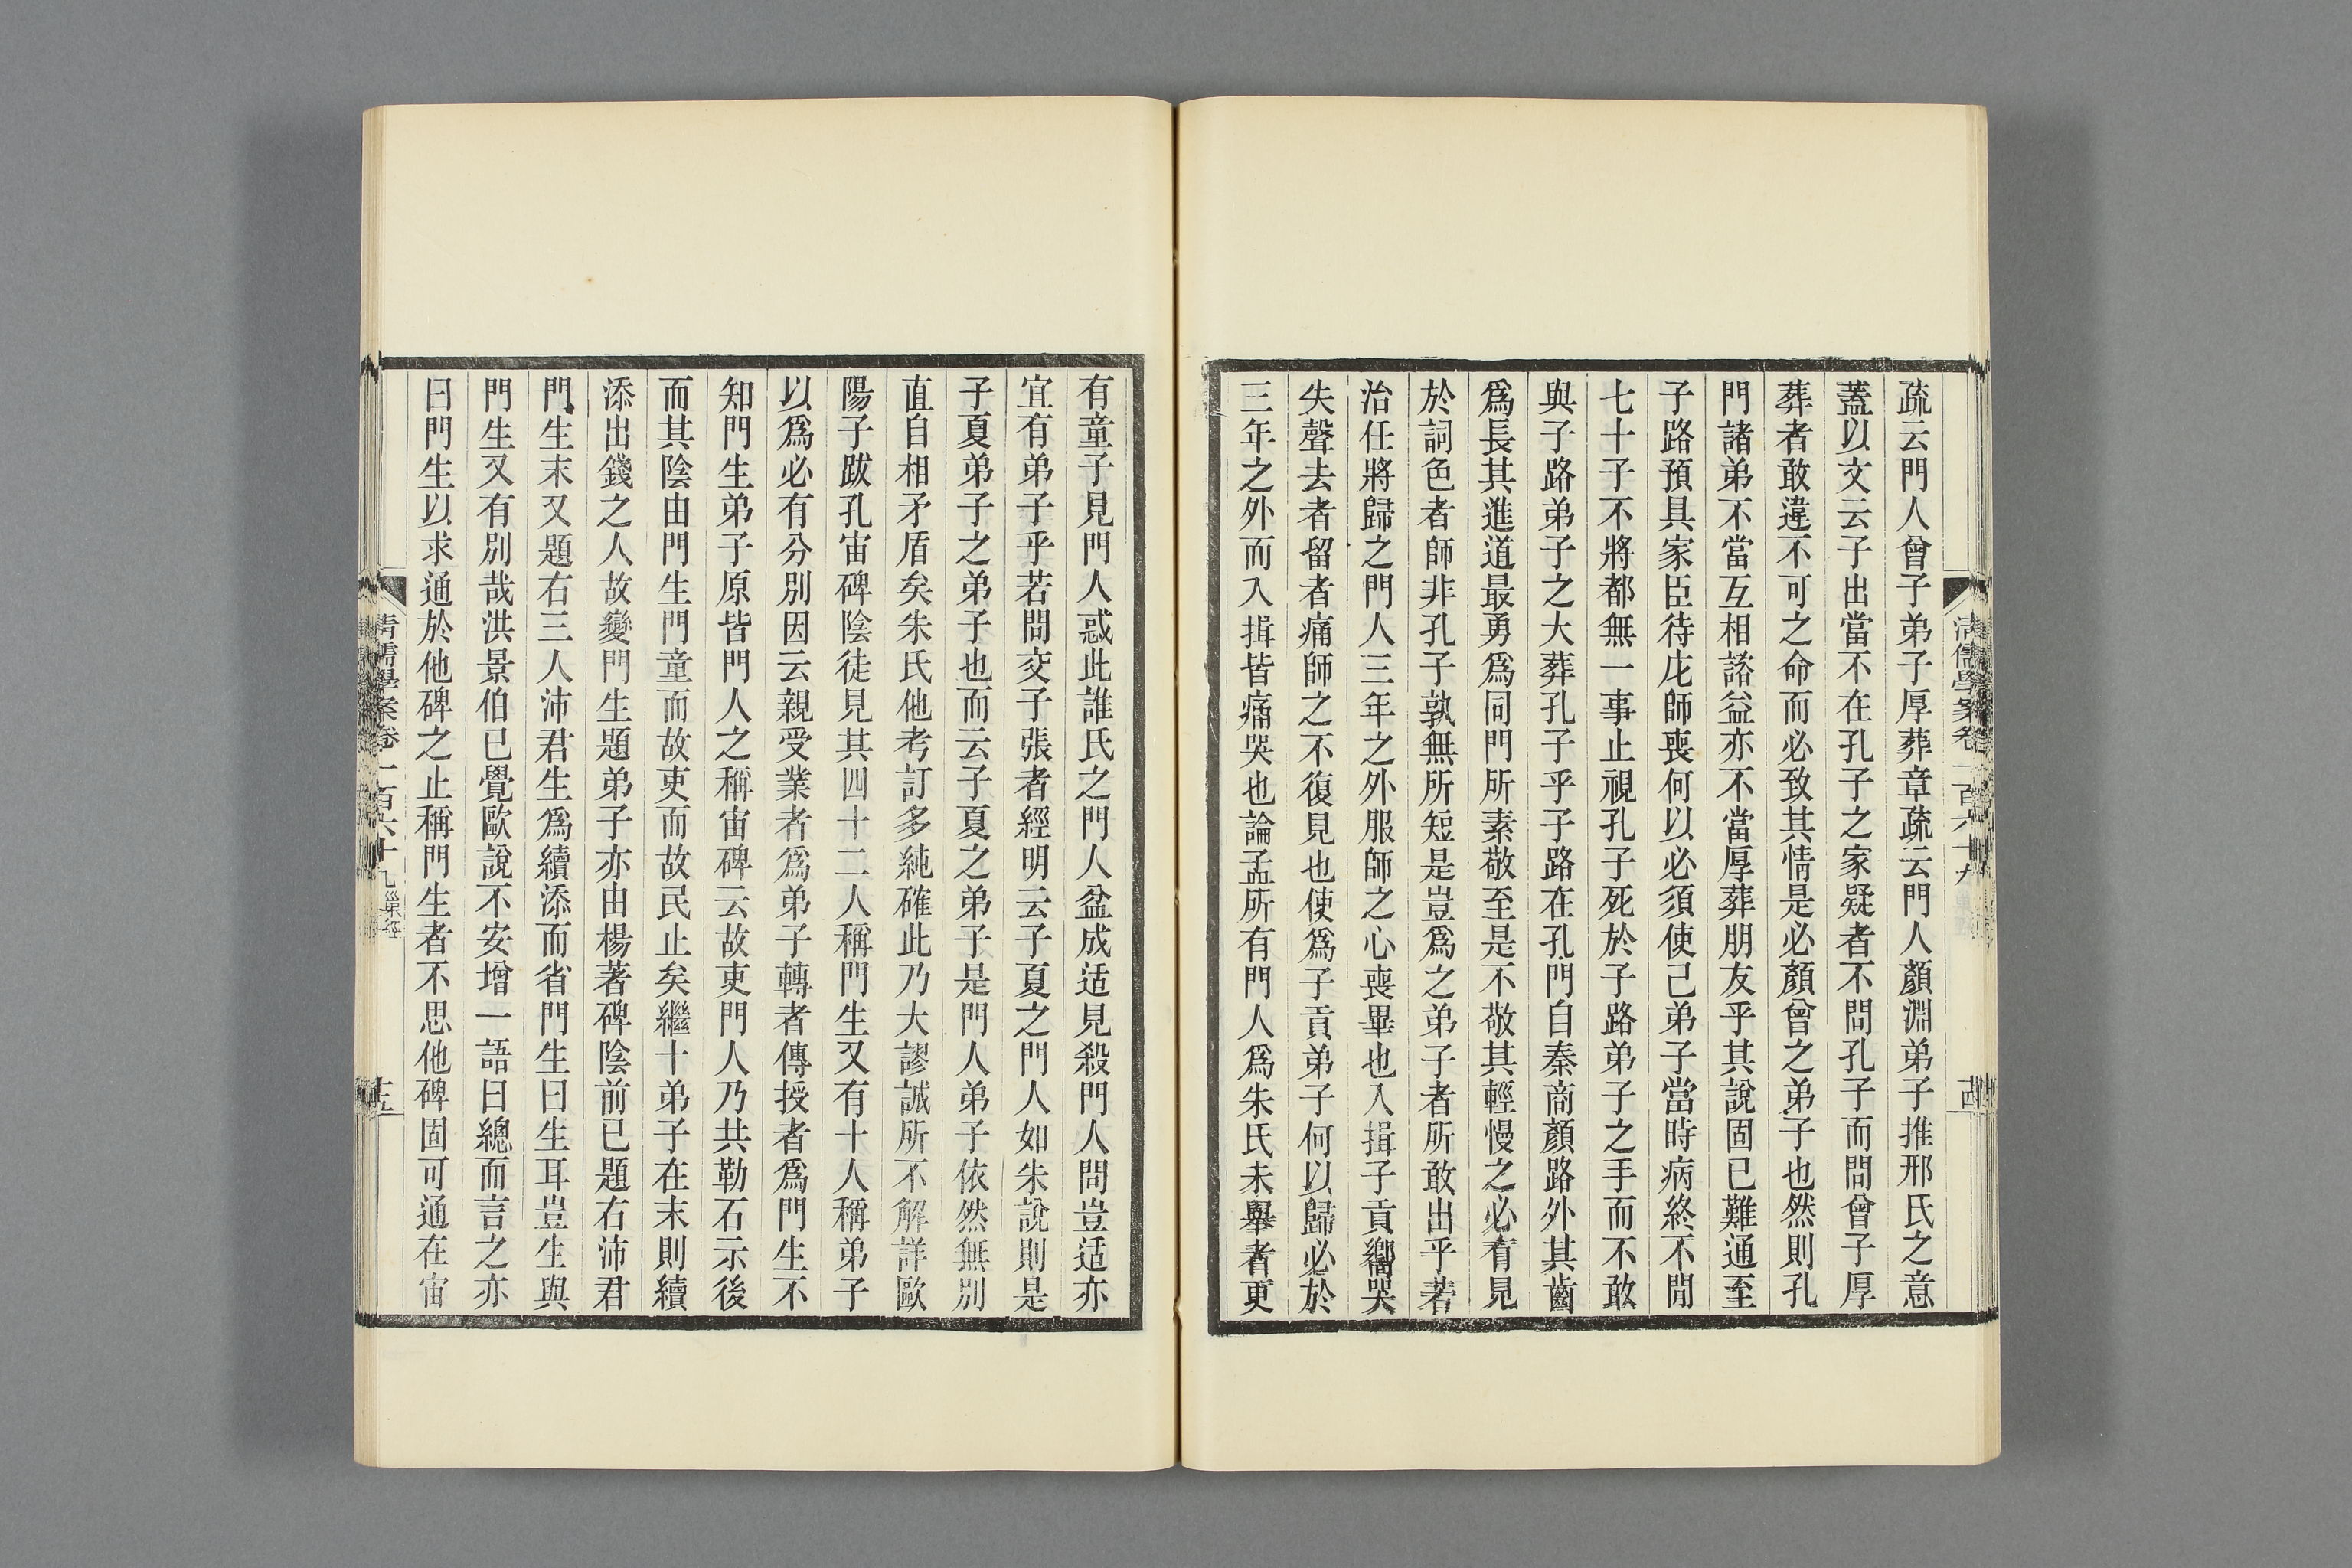 疏云門人曾子弟子厚葬章疏云門人顏淵弟子推邢氏之意
蓋以文云子出當不在孔子之家疑者不問孔子而問曾子厚
葬者敢違不可之命而必致其情是必顏曾之弟子也然則孔
門諸弟不當互相諮益亦不當厚葬朋友乎其說固已難通至
子路預具家臣待庀師喪何以必須使己弟子當時病終不閒
七十子不將都無一事止視孔子死於子路弟子之手而不敢
與子路弟子之大葬孔子乎子路在孔門自秦商顏路外其齒
爲長其進道最勇爲同門所素敬至是不敬其輕慢之必有見
於詞色者師非孔子孰無所短是豈爲之弟子者所敢出乎若
治任將歸之門人三年之外服師之心喪畢也入揖子貢嚮哭
失聲去者留者痛師之不復見也使爲子貢弟子何以歸必於
三年之外而入揖皆痛哭也論孟所有門人爲朱氏未舉者更
清儒學案卷一百六十九
十四
有童子見門人惑此誰氏之門人盆成适見殺門人問豈适亦
宜有弟子乎若問交子張者經明云子夏之門人如朱說則是
子夏弟子之弟子也而云子夏之弟子是門人弟子依然無別
直自相矛盾矣朱氏他考訂多純確此乃大謬誠所不解詳歐
陽子跋孔宙碑陰徒見其四十二人稱門生又有十人稱弟子
以爲必有分別因云親受業者爲弟子轉者傳授者爲門生不
知門生弟子原皆門人之稱宙碑云故吏門人乃共勒石示後
而其陰由門生門童而故吏而故民止矣繼十弟子在末則續
添出錢之人故變門生題弟子亦由楊著碑陰前已題右沛君
門生末又題右三人沛君生爲續添而省門生曰生耳豈生與
門生又有別哉洪景伯已覺歐說不安增一語曰總而言之亦
曰門生以求通於他碑之止稱門生者不思他碑固可通在宙
清儒學案卷一百六十九 巢經
十五